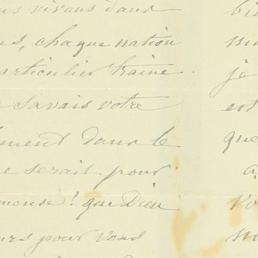 us vivons dans
es, chaque nation
particulier traine
savais votre
ment dans le
e serait pour
mense! que Dieu
urs pour vous
bie
ma
je
est
que
a
vo